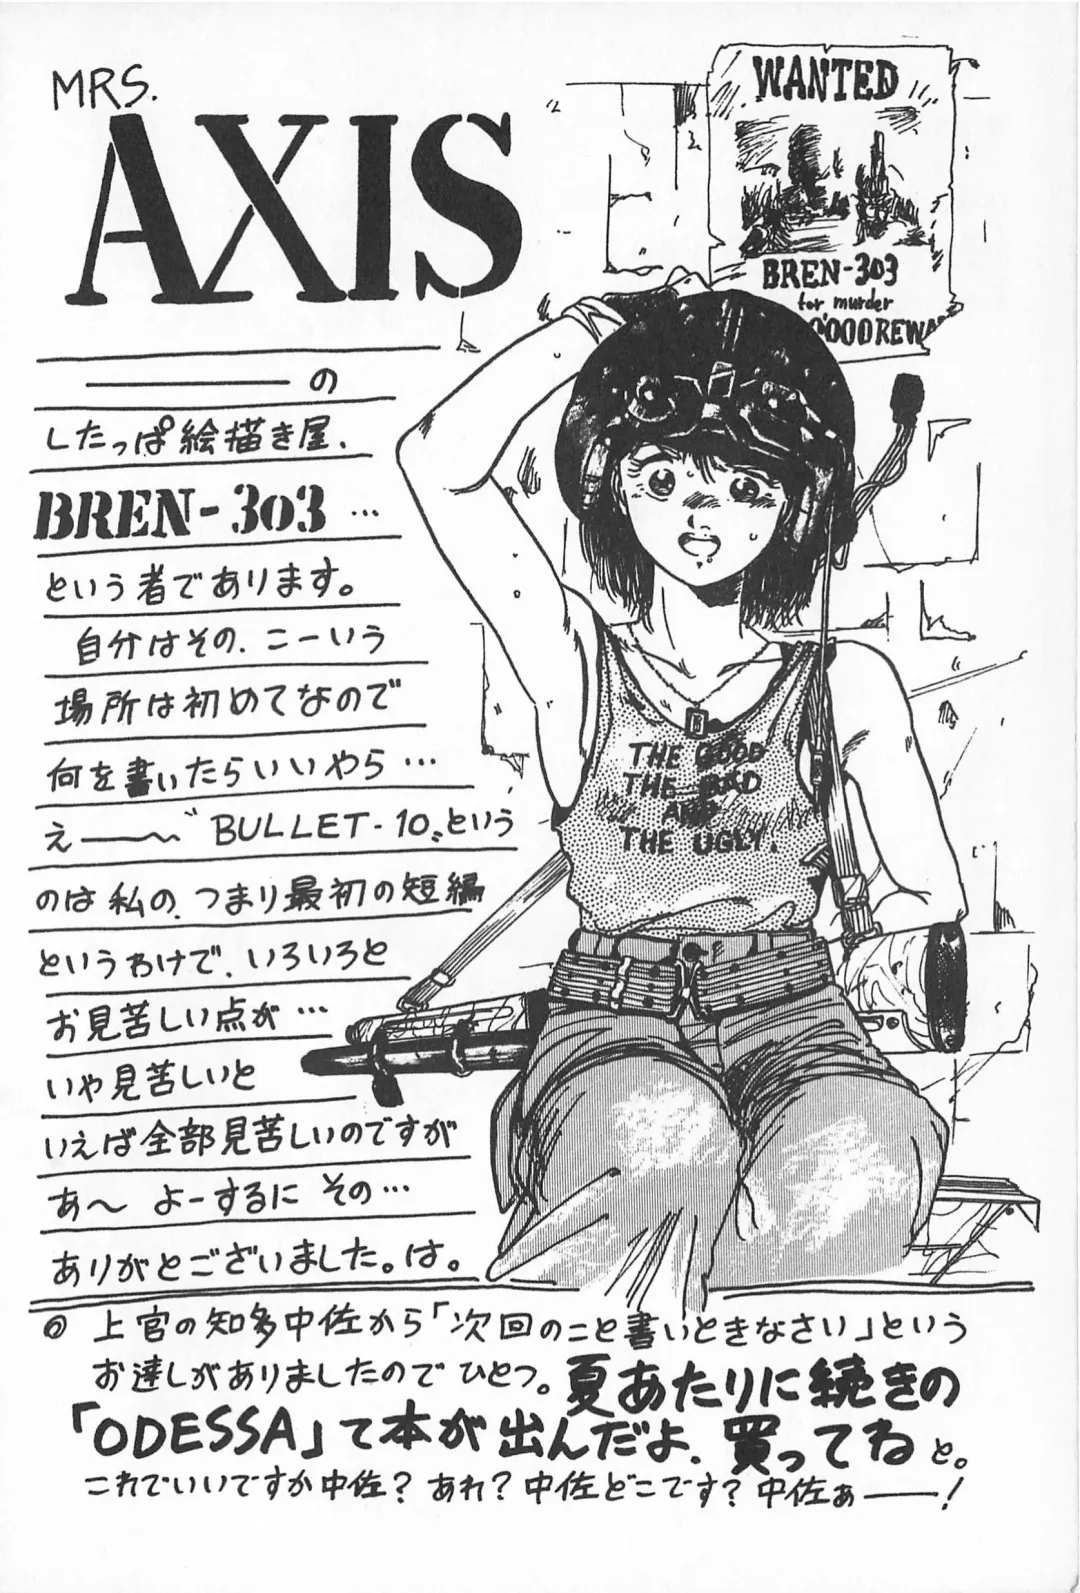 MRS.
AXIS
WANTED
BREN-303
for murder
'000REWA
の
したっぱ絵描き屋.
BREN-303…
という者であります。
自分はその.こーいう
場所は初めてなので
何を書いたらいいやら…
え——〜"BULLET-10"という
のは私の.つまり最初の短編
というわけで.いろいろと
お見苦しい点が…
いや見苦しいと
いえば全部見苦しいのですが
あ〜 よーするに その…
ありがとございました。は。
THE GOOD
THE BAD
AND
THE UGLY.
◎ 上官の知多中佐から「次回のこと書いときなさい」という
お達しがありましたのでひとつ。夏あたりに続きの
「ODESSA」て本が出んだよ.買ってねと。
これでいいですか中佐?あれ?中佐どこです?中佐ぁ——!